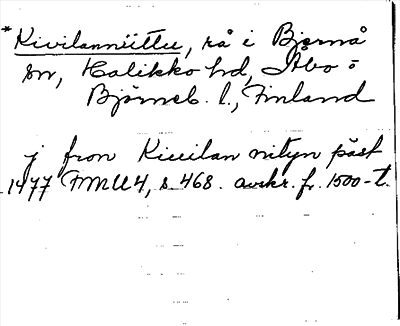 *Kivilanniittu, rå i Bjernå
sn, Halikko hd, Åbo o
Björneb. l., Finland
j fron Kiuilan nityn päst
1477 FMU 4, s. 468. avskr. fr. 1500-t.